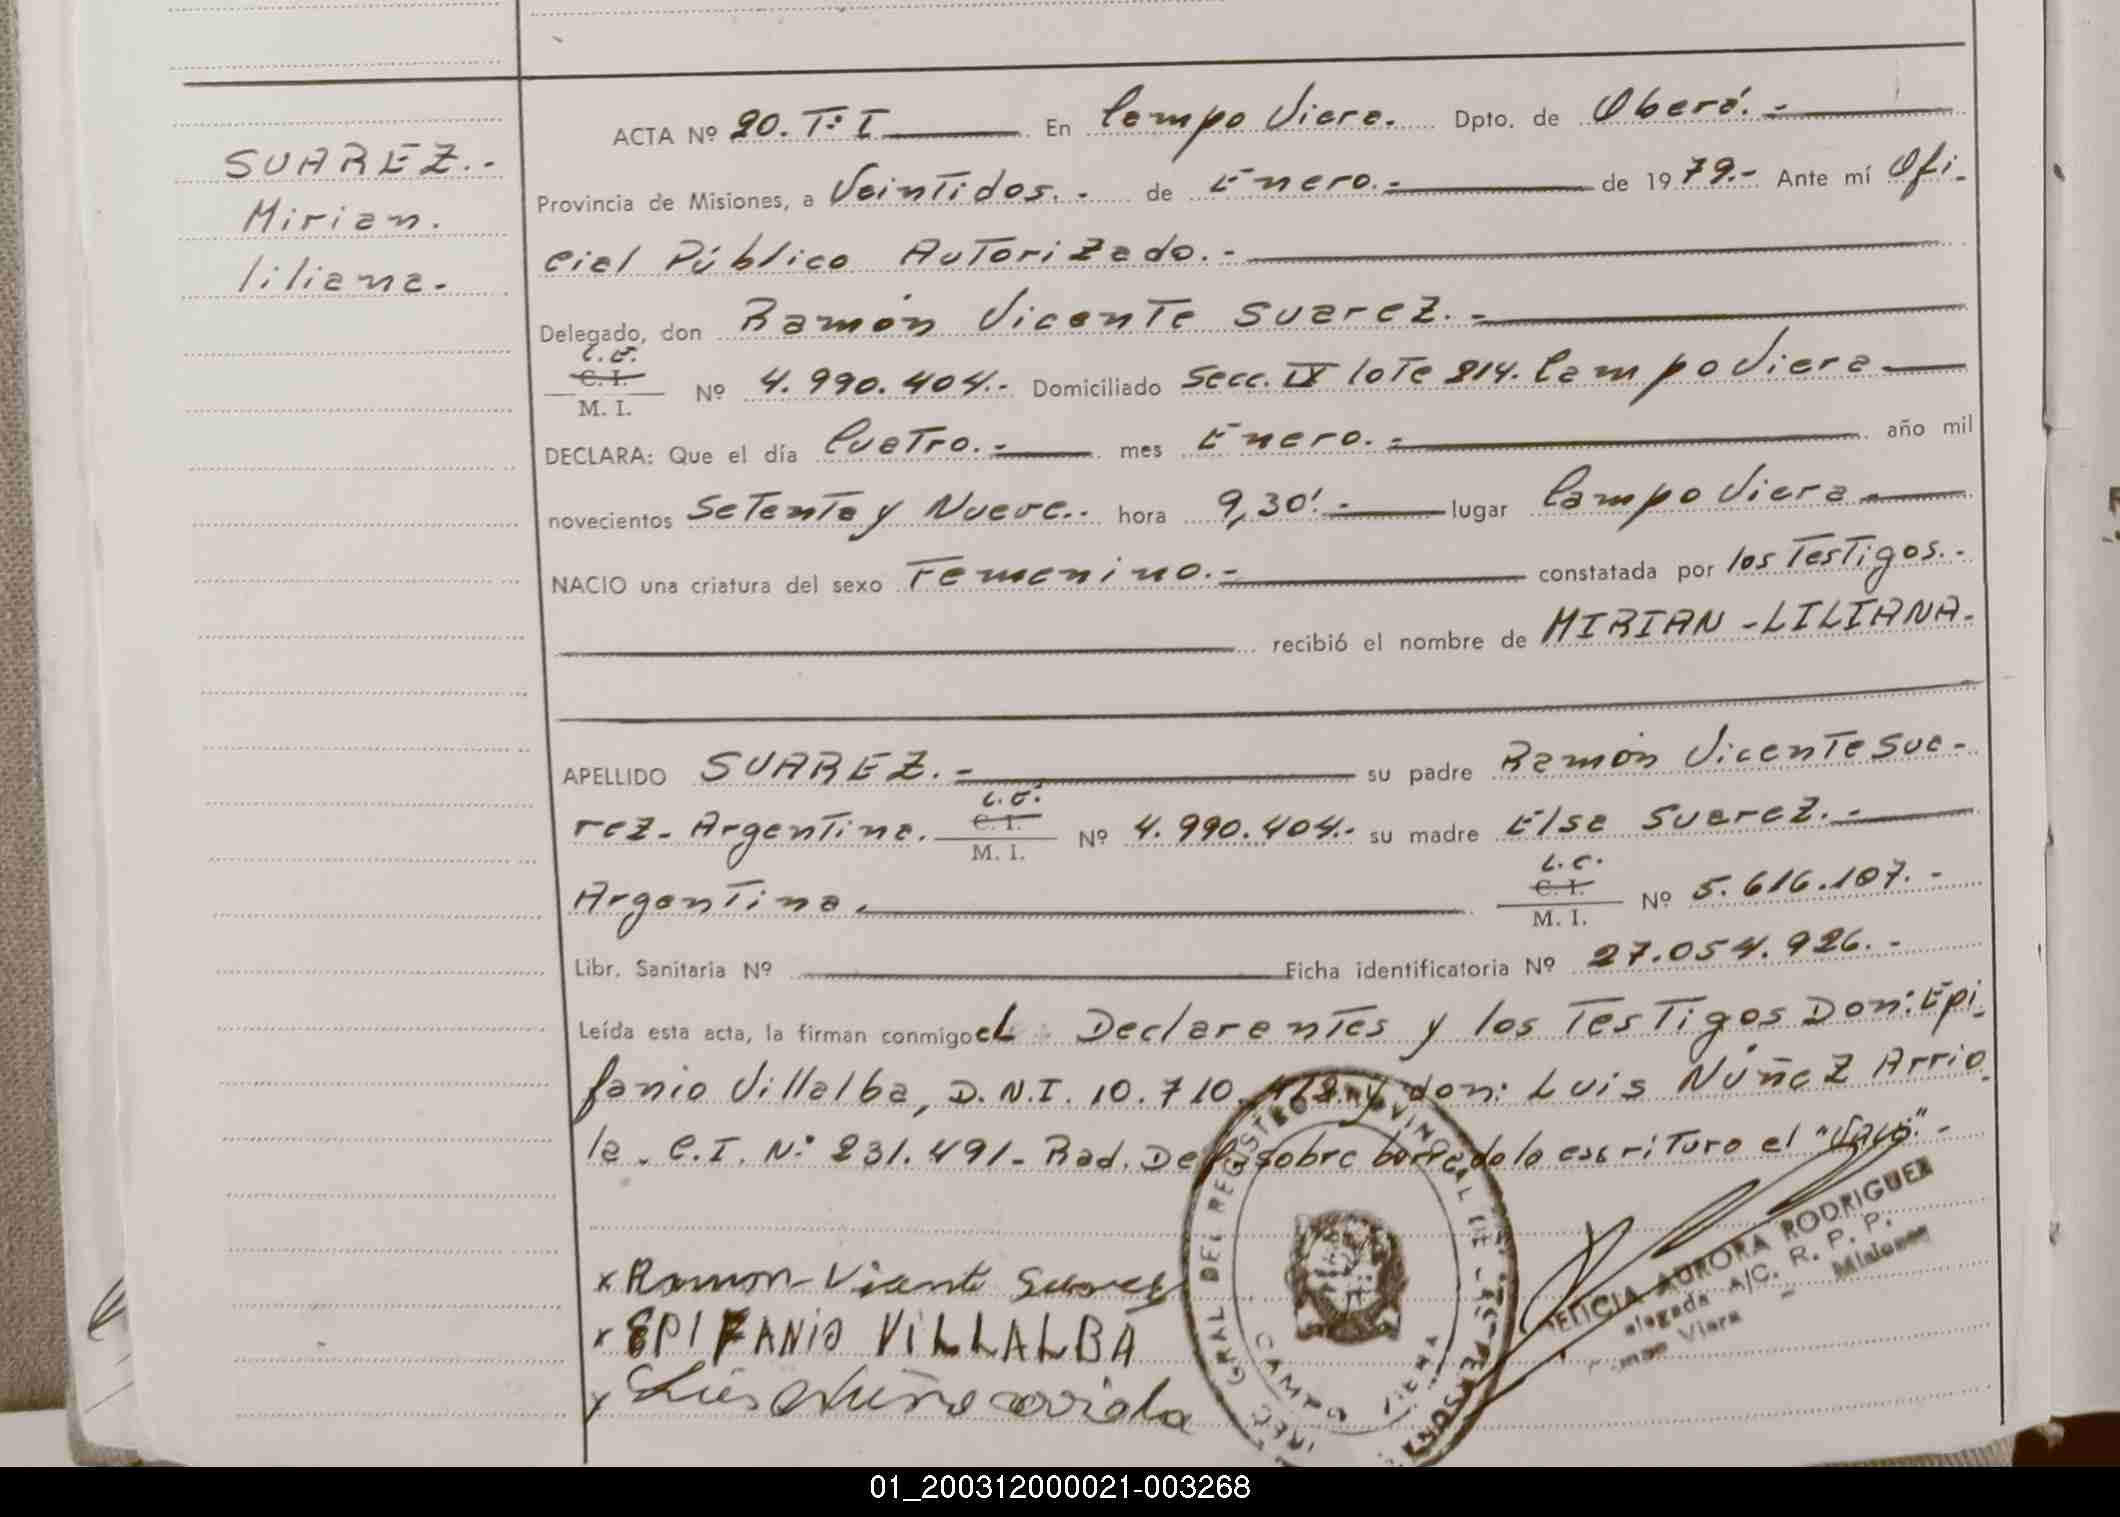 SUAREZ.-
Mirian.
liliana.
ACTA Nº 20. Tº I En Campo Viera. Dpto. de Oberá.-
Provincia de Misiones, a Veintidos.- de Enero.- de 1979.- Ante mí Ofi-
cial Público Autorizado.-
Delegado, don Ramón Vicente Suarez.-
L.E.
C. I.
M. I.
Nº 4.990.404.- Domiciliado Secc. IX lote 214. Campo Viera
DECLARA: Que el día Cuatro.- mes Enero.- año mil
novecientos Setenta y Nueve.. hora 9,30'.- lugar Campo Viera
NACIO una criatura del sexo Femenino.- constatada por los Testigos.-
recibió el nombre de MIRIAN-LILIANA.
APELLIDO SUAREZ.- su padre Ramón Vicente Sua-
rez- Argentina. L.E. C. I. M. I. Nº 4.990.404.- su madre Elsa Suarez.-
Argentina. L.C. C. I. M. I. Nº 5.616.107.-
Libr. Sanitaria Nº Ficha identificatoria Nº 27.054.926.-
Leída esta acta, la firman conmigo el Declarantes y los Testigos Don: Epi-
fanio Villalba, D.N.I. 10.710. y don: Luis Núñez Arrio-
la. C.I. Nº 231.491- Rad. Def. sobre borrado lo escrituro el
x Ramon Vicente Suarez
x EPIFANIO VILLALBA
x Luis Nuñe arriola
GRAL DEL REGISTRO PROVINCIAL DE LAS PERSONAS
CAMPO VIERA
FELICIA AURORA RODRIGUEZ
Delegada A/C. R. P. P.
Campo Viera - Misiones
01_200312000021-003268